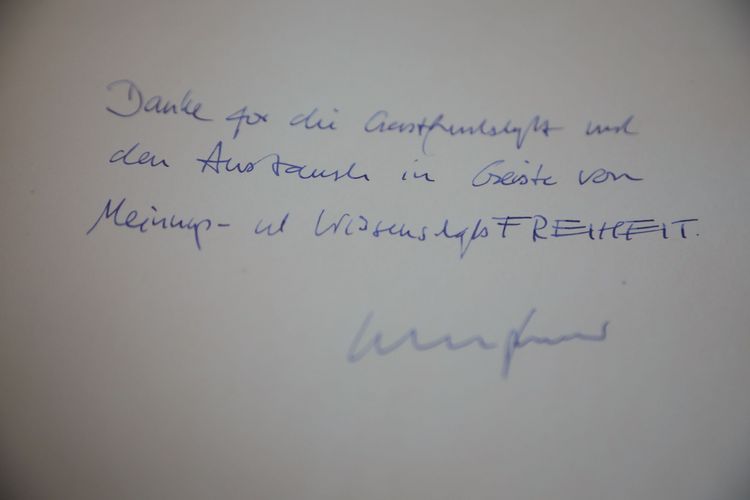 Danke für die Gastfreundschaft und
den Austausch im Geiste von
Meinungs- und WissenschaftsFREIHEIT.